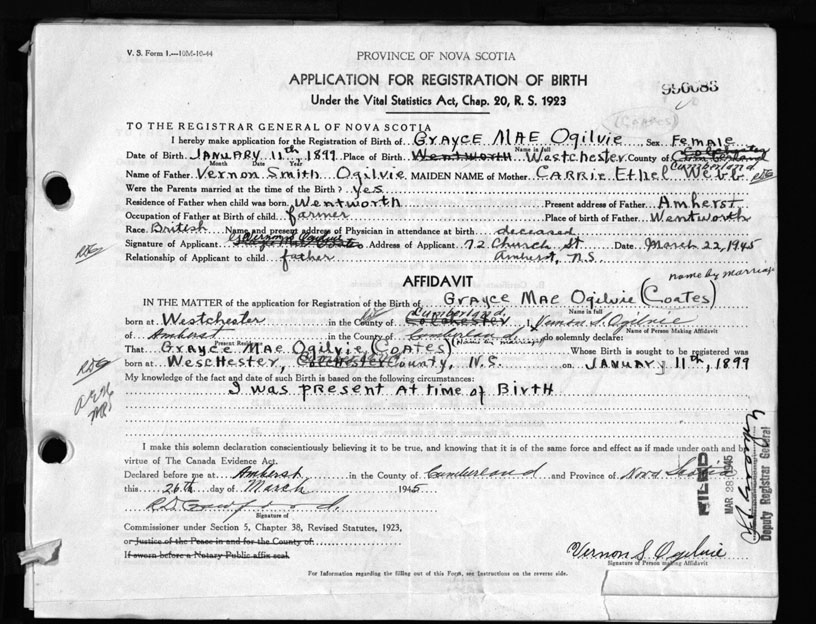 V. S. Form 1.—10M-10-44
PROVINCE OF NOVA SCOTIA
APPLICATION FOR REGISTRATION OF BIRTH
Under the Vital Statistics Act, Chap. 20, R. S. 1923
(Coates)
TO THE REGISTRAR GENERAL OF NOVA SCOTIA
I hereby make application for the Registration of Birth of GRAYCE MAE Ogilvie Sex Female
Name in full
Date of Birth JANUARY 11th 1899 Place of Birth Wentworth Westchester County of Cumberland
Month Date Year
Name of Father Vernon Smith Ogilvie MAIDEN NAME of Mother CARRIE Ethel Webb
Were the Parents married at the time of the Birth? yes
Residence of Father when child was born Wentworth Present address of Father Amherst
Occupation of Father at Birth of child farmer Place of birth of Father Wentworth
Race British Name and present address of Physician in attendance at birth deceased
Signature of Applicant Vernon S Ogilvie Address of Applicant 72 Church St Date March 22, 1945
Relationship of Applicant to child father Amherst, N.S.
AFFIDAVIT
name by marriage
IN THE MATTER of the application for Registration of the Birth of GRAYCE MAE Ogilvie (Coates)
Name in full
born at Westchester in the County of Cumberland Colchester I, Vernon S. Ogilvie
Name of Person Making Affidavit
of Amherst in the County of Cumberland do solemnly declare:
Present Residence
That GRAYCE MAE Ogilvie (COATES) (Name in full) Whose Birth is sought to be registered was
born at WESCHESTER, Cumberland COLCHESTER County, N.S. on JANUARY 11th, 1899
My knowledge of the fact and date of such Birth is based on the following circumstances:
I was present At time of Birth
I make this solemn declaration conscientiously believing it to be true, and knowing that it is of the same force and effect as if made under oath and by
virtue of The Canada Evidence Act.
Declared before me at Amherst in the County of Cumberland and Province of Nova Scotia
this 26th day of March 1945
Signature of
Commissioner under Section 5, Chapter 38, Revised Statutes, 1923,
or Justice of the Peace in and for the County of
If sworn before a Notary Public affix seal.
Vernon S. Ogilvie
Signature of Person making Affidavit
For Information regarding the filling out of this Form, see Instructions on the reverse side.
FILED
MAR 28 1945
Deputy Registrar General